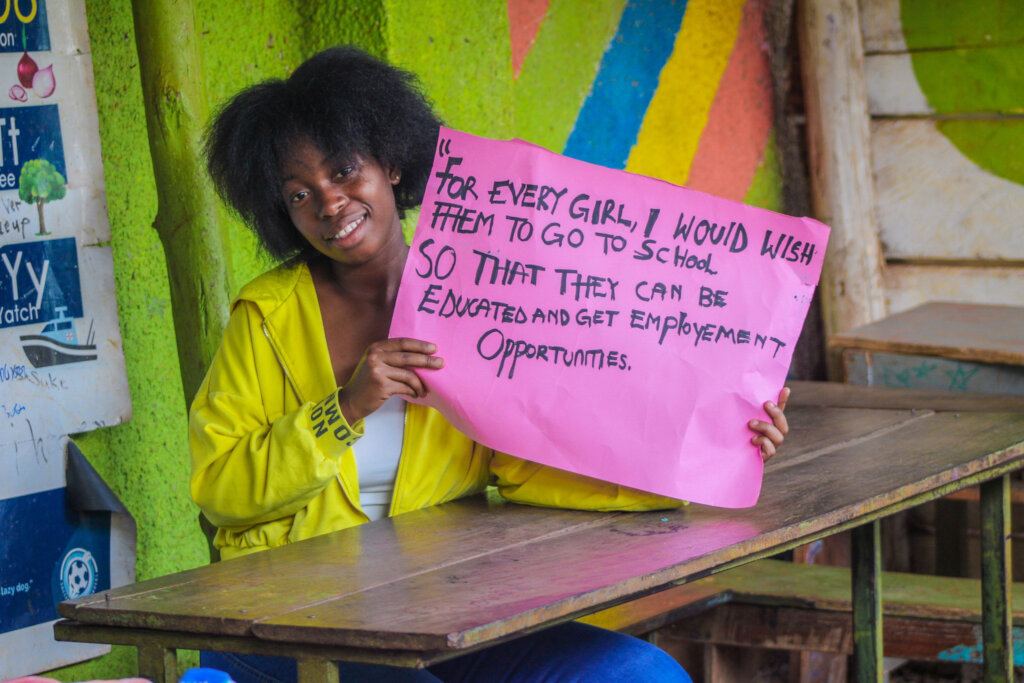 Tt
Yy
Yatch
lazy dog."
"FOR EVERY GIRL, I WOULD WISH
THEM TO GO TO SCHOOL
SO THAT THEY CAN BE
EDUCATED AND GET EMPLOYEMENT
OPPORTUNITIES.